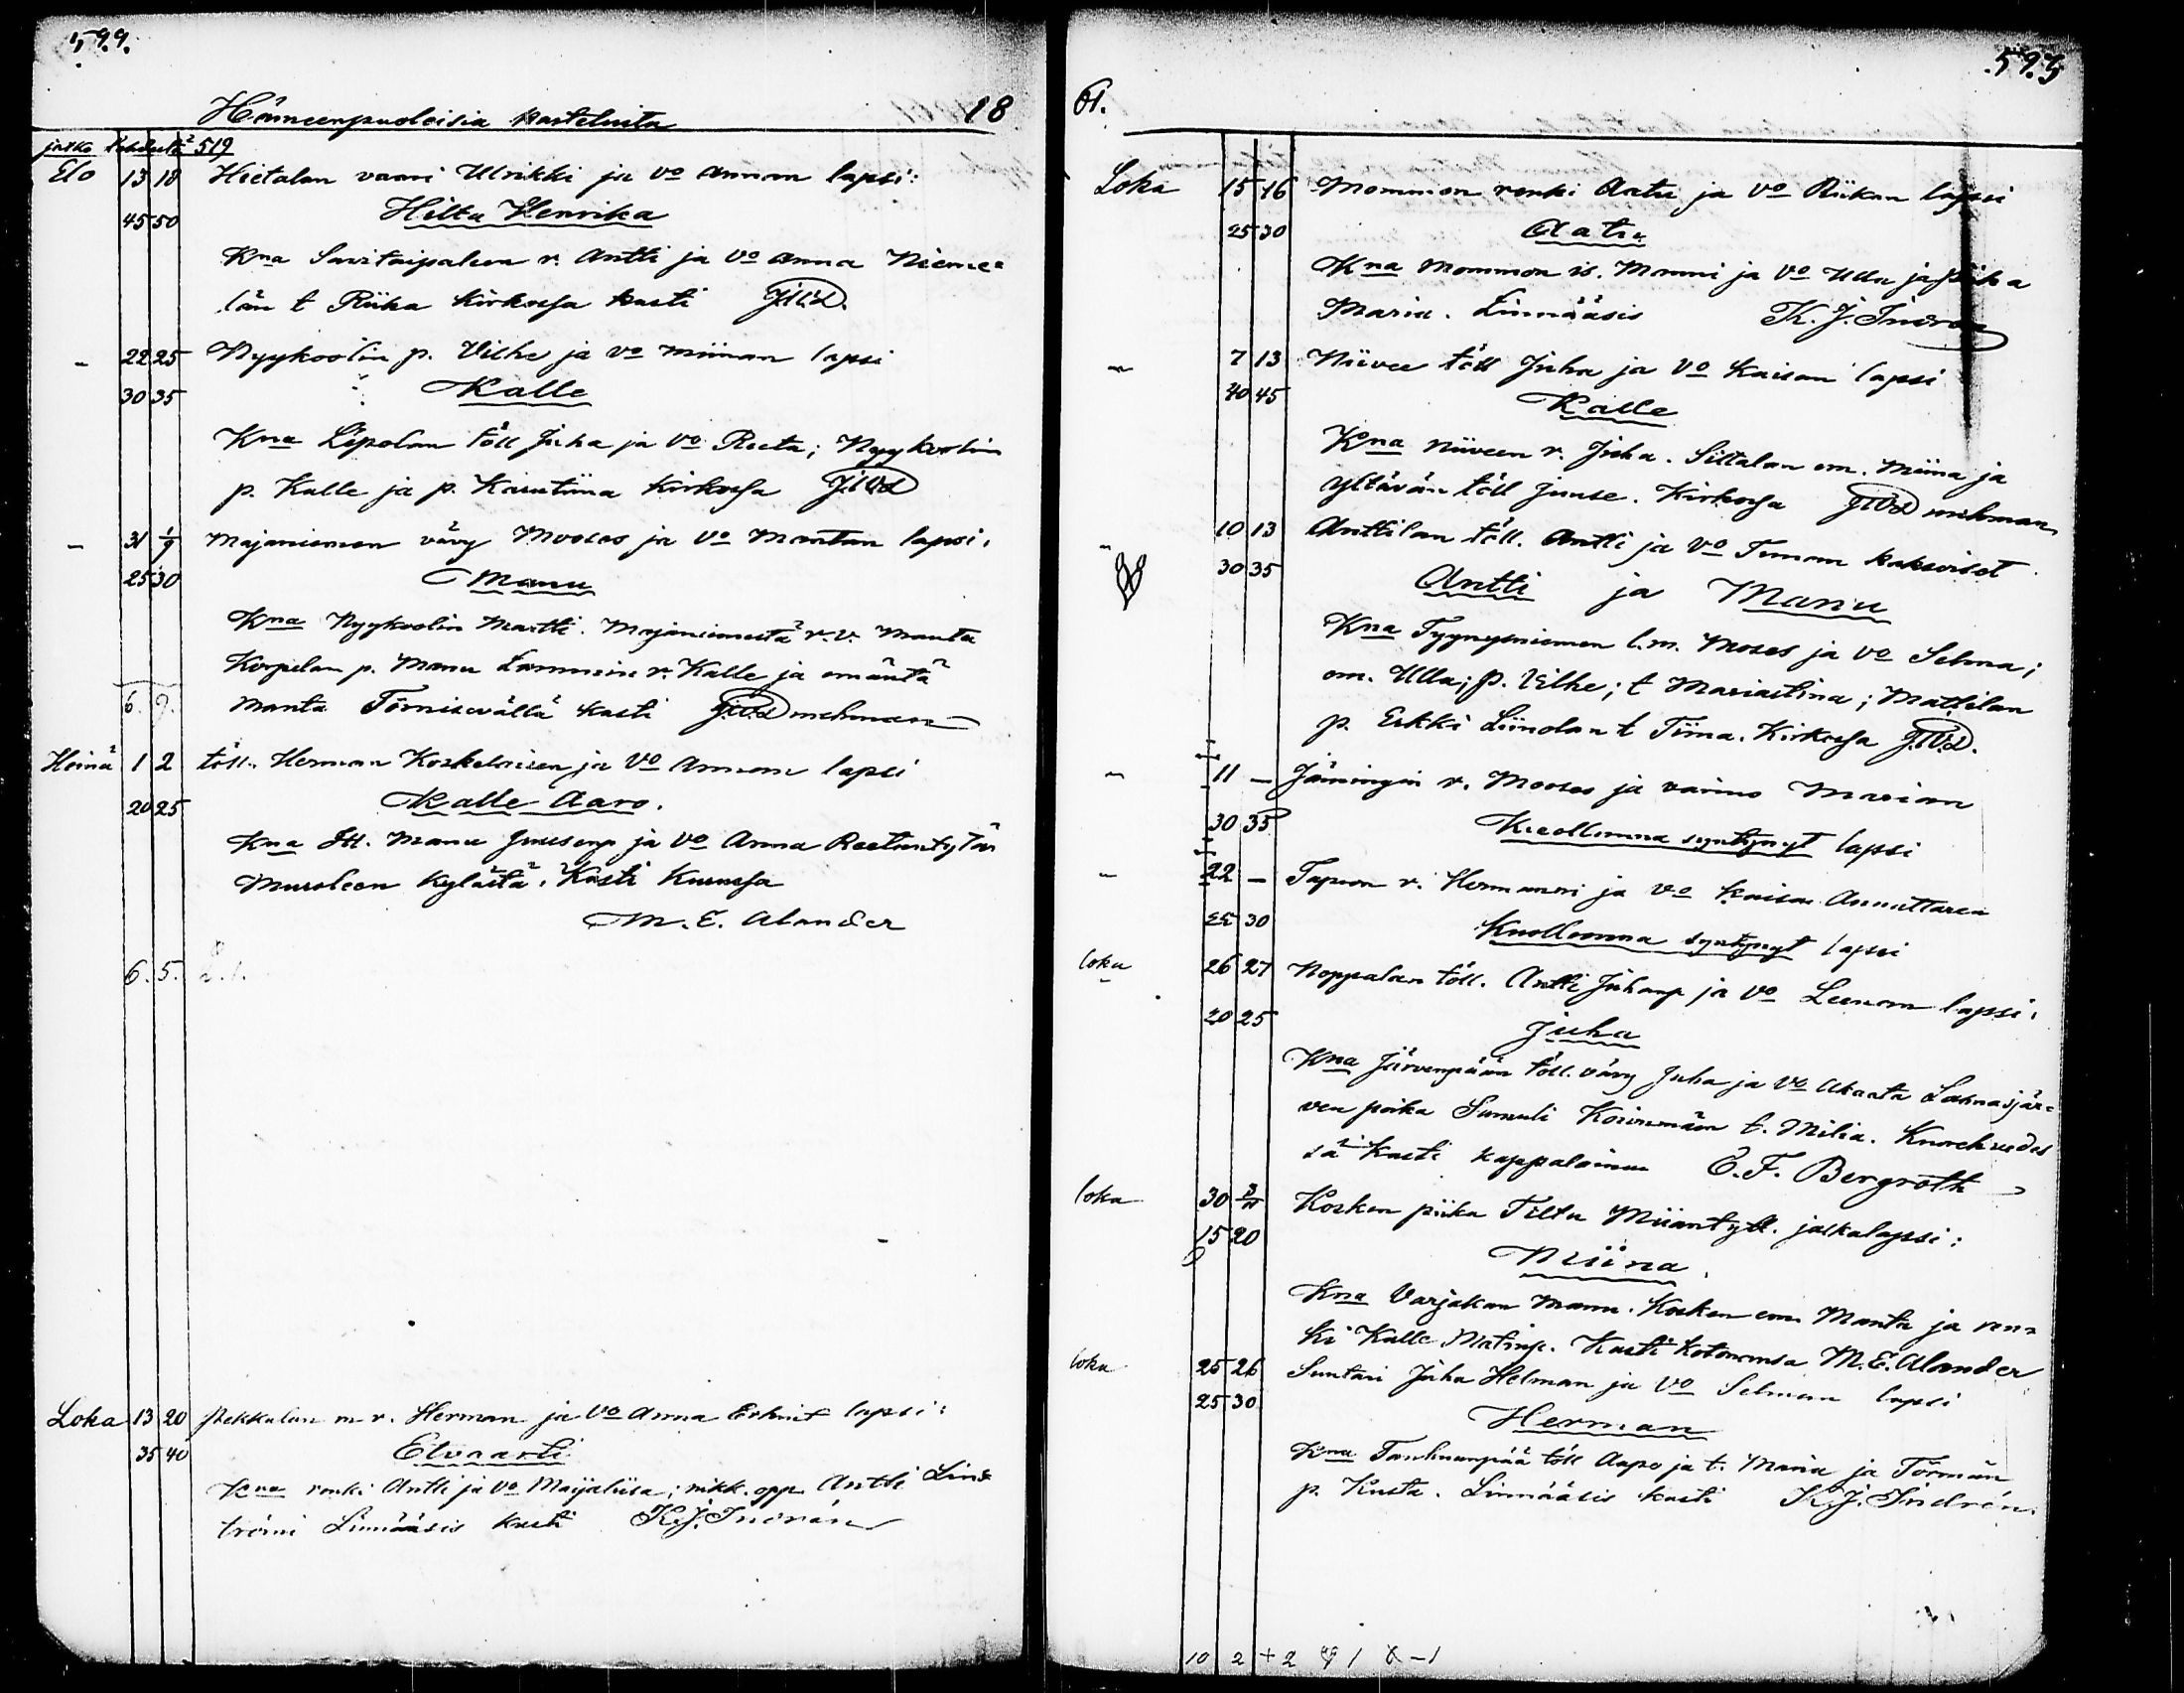 599.
Hämeenpuoleisia kasteluita 18
jatko lehdeltä 519
Elo 13 18 Hietalan vaari Ulrikki ja vo Annan lapsi:
45 50 Hilta Henrika
Kna Savitaipaleen r. Antti ja vo Anna Nieme=
län t Riika Kirkossa kasti
- 22 25 Nyykoolin p. Vilhe ja vo Miinan lapsi
30 35 Kalle
Kna Lepolan töll Juha ja vo Reeta; Nyykoolin
p. Kalle ja p. Kaisatiina Kirkossa
- 31 1/9 Majaniemen vävy Mooses ja vo Mantan lapsi.
25 30 Manu
Kna Nyykoolin Martti. Majaniemestä r. v. Manta
Korpelan p. Manu Lammin r. Kalle ja emäntä
6. 9. Manta Törnisevällä kasti
Heinä 1 2 töll. Herman Koskelaisen ja vo Annan lapsi
20 25 Kalle Aaro.
Kna Itl. Manu Juusenp ja vo Anna Reetantytär
Muroleen kylästä. Kasti Kurussa
M. E. Alander
6. 5.
Loka 13 20 Pekkalan m r. Herman ja vo Anna lapsi:
35 40 Etvaarti
Kna renki Antti ja vo Maijaliisa; nikk. opp. Antti Lins
trömi Linnääsis kasti K. J. Indrén
595
61.
Loka 15 16 Mommon renki Aatu ja vo Riikan lapsi
25 30 Aatu
Kna Mommon is. Manni ja vo Ulla ja piika
Maria. Linnääsis K. J. Indrén
- 7 13 Niivee töll Juha ja vo Kaisan lapsi
40 45 Kalle
Kna Niiveen r. Juha. Siltalan em. Miina ja
Yltävän töll Juuse. Kirkossa
- 10 13 Anttilan töll. Antti ja vo Timan kaksoiset
30 35 Antti ja Manu
Kna Tyynysniemen l.m. Moses ja vo Selma;
em. Ulla; p. Vilhe; t Mariastina; Mattilan
p. Erkki Liindan t Tiina. Kirkossa
- 11 - Jäiningin r. Mooses ja vaimo Marian
30 35 Kuollunna syntynyt lapsi
- 22 - Tapion r. Hermanni ja vo Kaisa Annuttaren
25 30 Kuolleenna syntynyt lapsi
loka 26 27 Noppalan töll. Antti Juhanp ja vo Leenan lapsi.
20 25 Juha
Kna Järvenpään töll. vävy Juha ja vo Akaata Lahnasjär=
ven poika Sameli Koivumäen t. Milia. Kuorehvedes
sä Kasti kappalainen E. F. Bergroth
loka 30 3/11 Kosken piika Tilta Miiantytt. jalkalapsi:
15 20 Miina
Kna Varjakan Manu. Kosken em Manta ja ren=
ki Kalle Matinp. Kasti kotonansa M. E. Alander
loka 25 26 Suntari Juha Helman ja vo Selman lapsi
25 30 Herman
Kna Tanhuanpää töll Aapo ja t. Maria ja Törmän
p. Kusta. Linnääsis kasti K. J. Indrén.
10 2 + 2